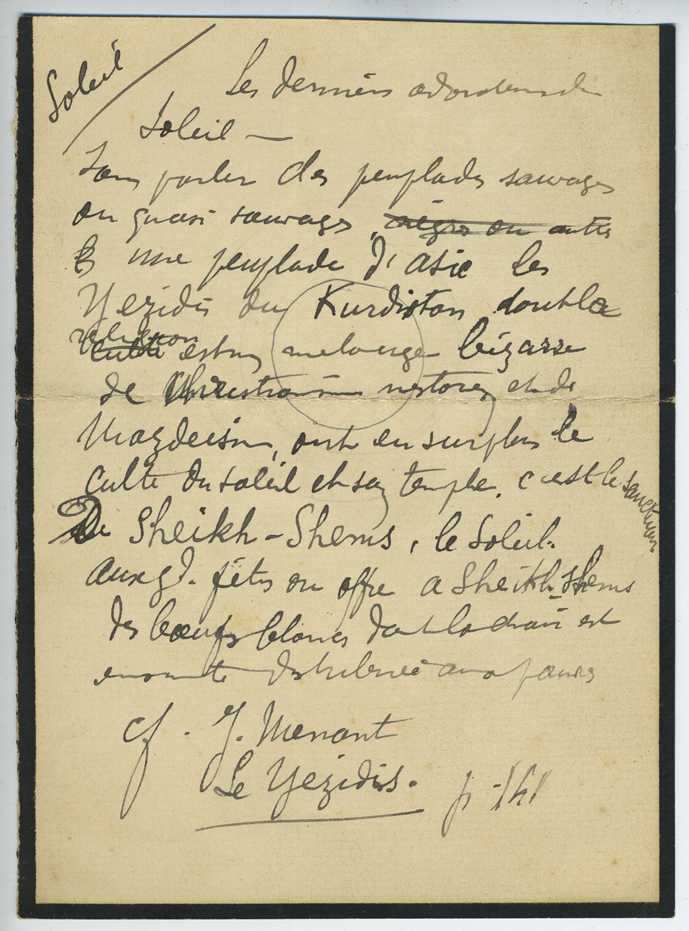 Soleil
Les derniers adorateurs du
Soleil —
Sans parler des peuplades sauvages
ou quasi sauvages, nègres ou autres
une peuplade d'Asie les
Yezidis du Kurdistan dont la
religion
culte est un melange bizarre
de Christianisme nestorien et de
Mazdeisme, ont en surplus le
culte du soleil et son temple. c'est le sanctuaire
De Sheikh-Shems, le Soleil.
aux gd. fêtes on offre a Sheikh-Shems
des bœufs blancs dont la chair est
ensuite distribuée aux pauvres
cf. J. Menant
Le Yezidis.
p. 141